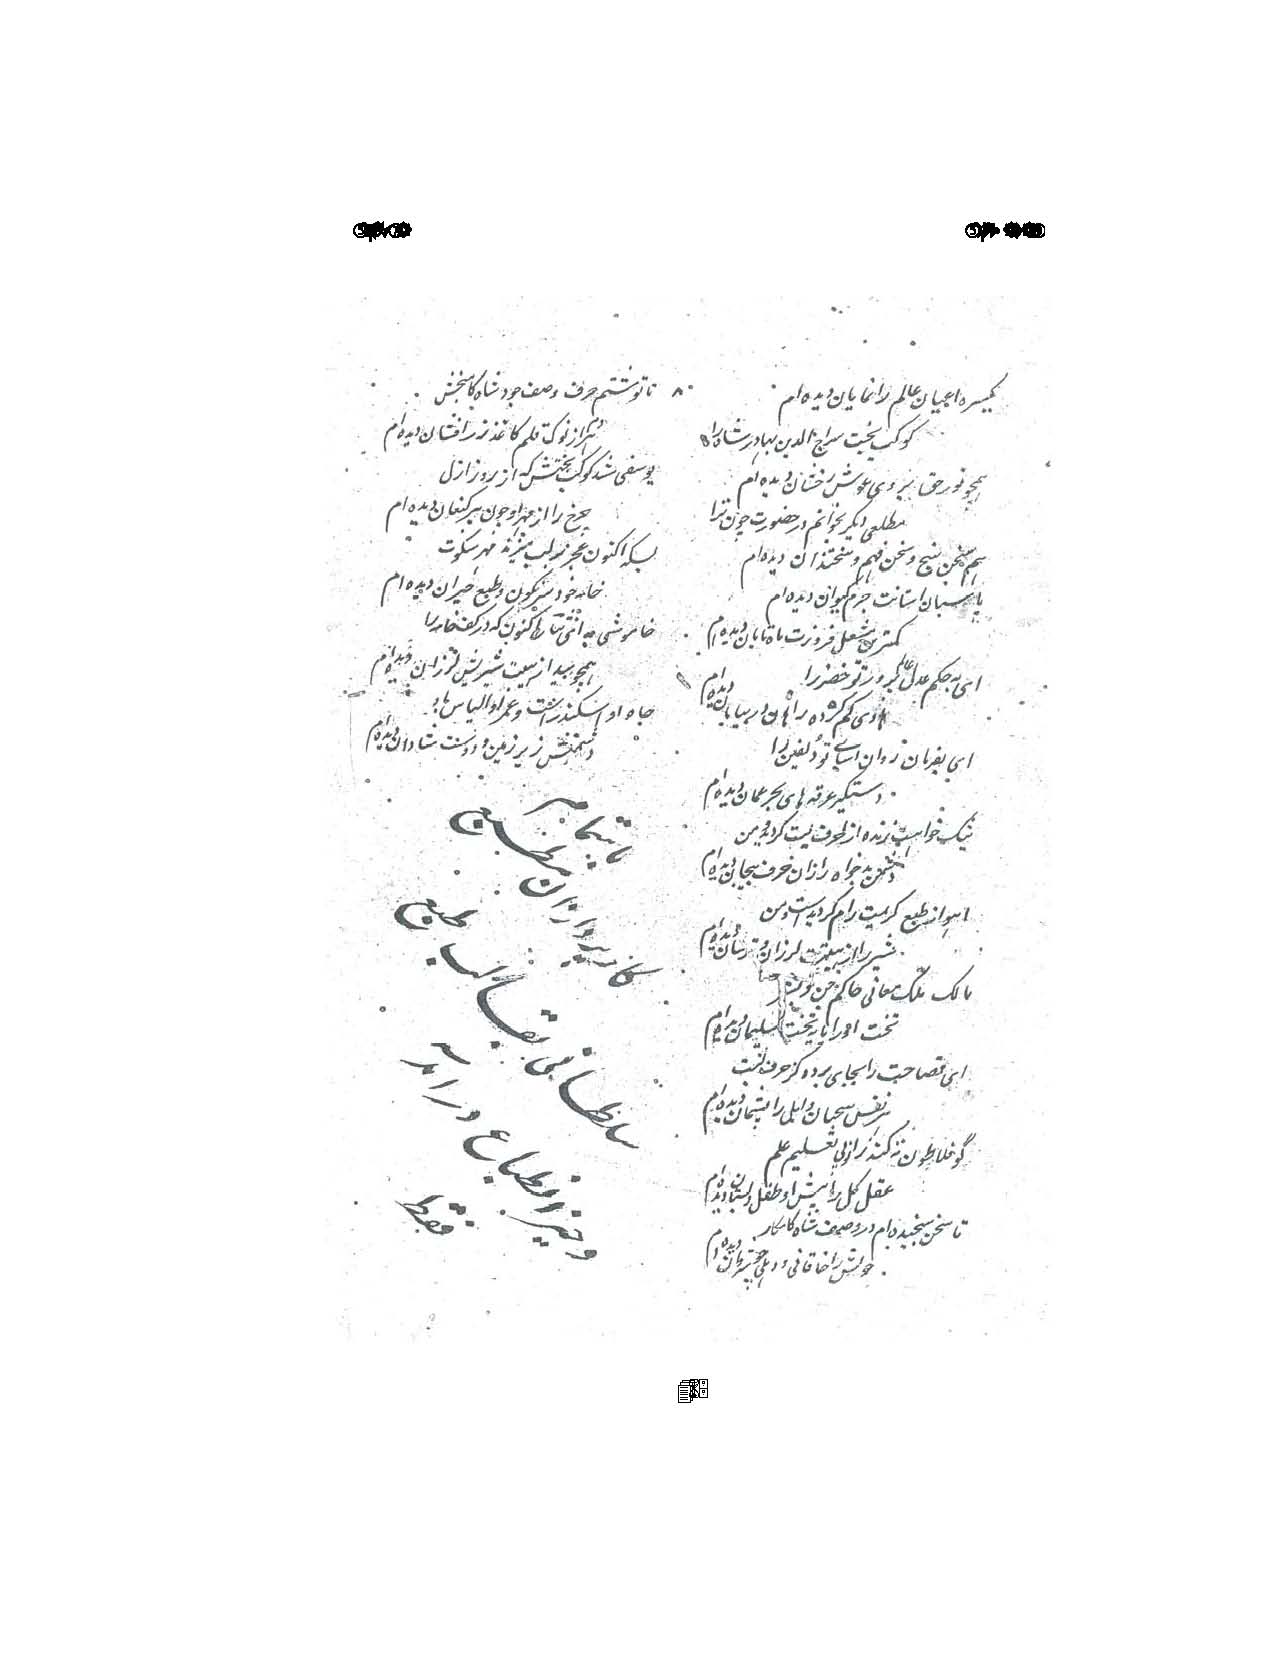 یکسره اعیان عالم را نمایان دیده ام
کوکب بخت سراج الدین بهادر شاه را
همچو نور حق بروی عرش رخشان دیده ام
مطلعی دیگر بخوانم در حضورت چون ترا
هم سخن سنج و سخن فهم و سخندان دیده ام
پاسبان آستانت جرم کیوان دیده ام
کمترین مشعل فروزت ماه تابان دیده ام
ای به حکم عدل عالم پرور تو خضر را
هادی گم کرده راهان در بیابان دیده ام
ای بفرمان روان آسای تو دلفین را
دستگیر غرقه های بحر عمان دیده ام
نیک خواهت زنده از حرف لبت گردید و من
دشمن بدخواه را زان حرف بیجان دیده ام
آهو از طبع کریمت رام گردیدست و من
شیر را از هیبتت لرزان و ترسان دیده ام
مالک ملک معانی حاکم جن و بشر
تخت او را پایه تخت سلیمان دیده ام
ای فصاحت را بجای برده کز حرف لبت
نفس سحبان وایل را پشیمان دیده ام
گو فلاطون نه کند از وی تعلیم علم
عقل کل را پیش او طفل دبستان دیده ام
تا سخن سنجیده ام در وصف شاه کامگار
خویش را خاقانی و
۸۰
تا نوشتم حرف وصف جود شاه کام بخش
سر از نوک قلم کاغذ زرافشان دیده ام
یوسفی شد کوکب بختش که از روز ازل
چرخ را از مهر او چون پیر کنعان دیده ام
بسکه اکنون عجز بر لب میزند مهر سکوت
خامه خود سرنگون و طبع حیران دیده ام
خاموشی به اکنون که در کف خامه را
همچو بید از هیبت شیرش لرزان دیده ام
جاه او اسکندر است و عمر او الیاس باد
دشمنش زیر زمین و دوست شادان دیده ام
باهتمام
کارپردازان مطبع
سلطانی بقالب طبع
و حیز انطباع درآمد
فقط